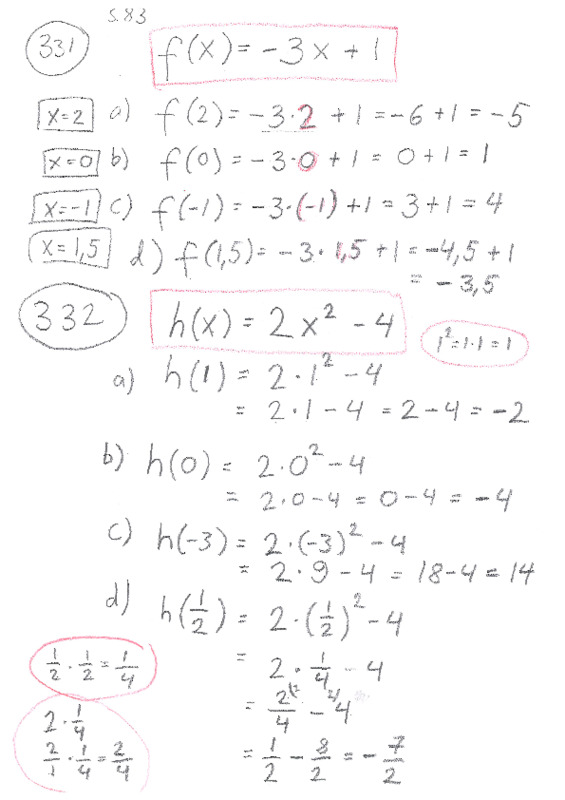 S.83
331 f(x) = -3x + 1
x=2 a) f(2) = -3·2 + 1 = -6 + 1 = -5
x=0 b) f(0) = -3·0 + 1 = 0 + 1 = 1
x=-1 c) f(-1) = -3·(-1) + 1 = 3 + 1 = 4
x=1,5 d) f(1,5) = -3·1,5 + 1 = -4,5 + 1
= -3,5
332 h(x) = 2x² - 4
1²=1·1=1
a) h(1) = 2·1² - 4
= 2·1 - 4 = 2 - 4 = -2
b) h(0) = 2·0² - 4
= 2·0 - 4 = 0 - 4 = -4
c) h(-3) = 2·(-3)² - 4
= 2·9 - 4 = 18 - 4 = 14
d) h(1/2) = 2·(1/2)² - 4
= 2·1/4 - 4
= 2/4 - 4
= 1/2 - 8/2 = -7/2
1/2 · 1/2 = 1/4
2 · 1/4
2/1 · 1/4 = 2/4